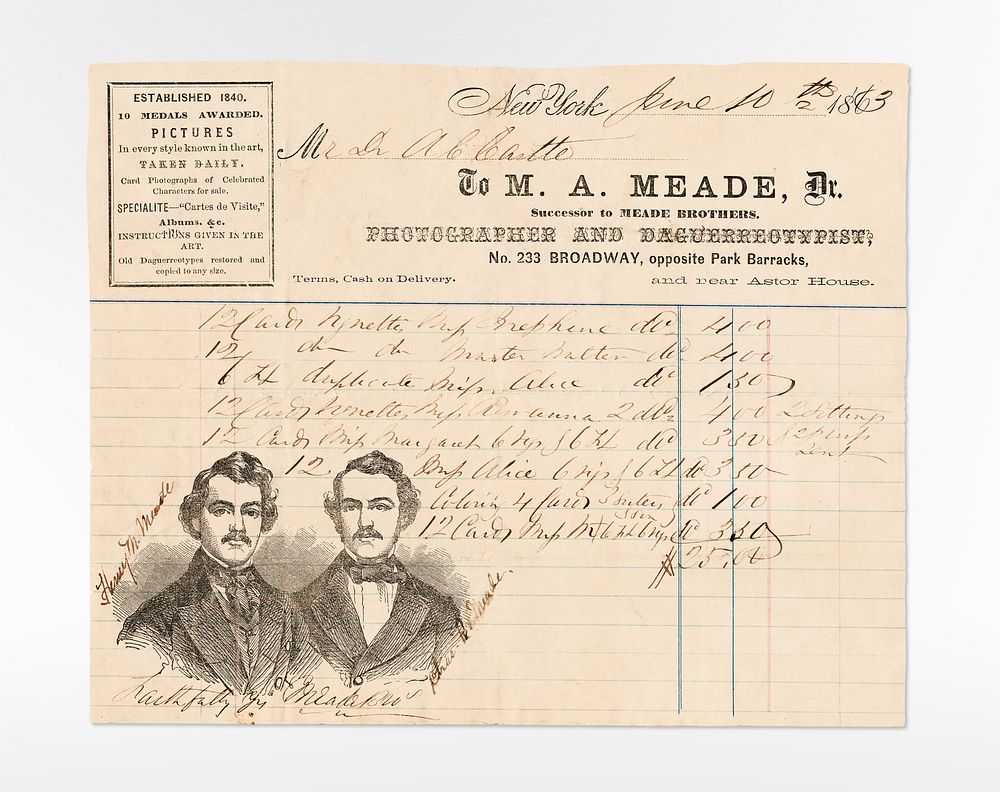 ESTABLISHED 1840.
10 MEDALS AWARDED.
PICTURES
In every style known in the art,
TAKEN DAILY.
Card Photographs of Celebrated
Characters for sale.
SPECIALITE—"Cartes de Visite,"
Albums. &c.
INSTRUCTIONS GIVEN IN THE
ART.
Old Daguerreotypes restored and
copied to any size.
New York June 10 th 1863
Mr Dr A C Castle
To M. A. MEADE, Dr.
Successor to MEADE BROTHERS.
PHOTOGRAPHER AND DAGUERREOTYPIST,
No. 233 BROADWAY, opposite Park Barracks,
Terms, Cash on Delivery. and near Astor House.
12 Cards Vignette, Miss Josephine do 4 00
12 do do Master Walter do 4 00
6 duplicate Miss Alice do 1 50
12 Cards Vignette, Miss 2 4 00 2 Sittings
12 Cards Miss Margaret 6 Vig & 6 do 3 50
12 Miss Alice 6 Vig & 6 do 3 50
4 Cards do 1 00
12 Cards Miss M 6 3 50
$25.00
Henry M. Meade
Chas R. Meade.
Faithfully Yrs Meade Bros